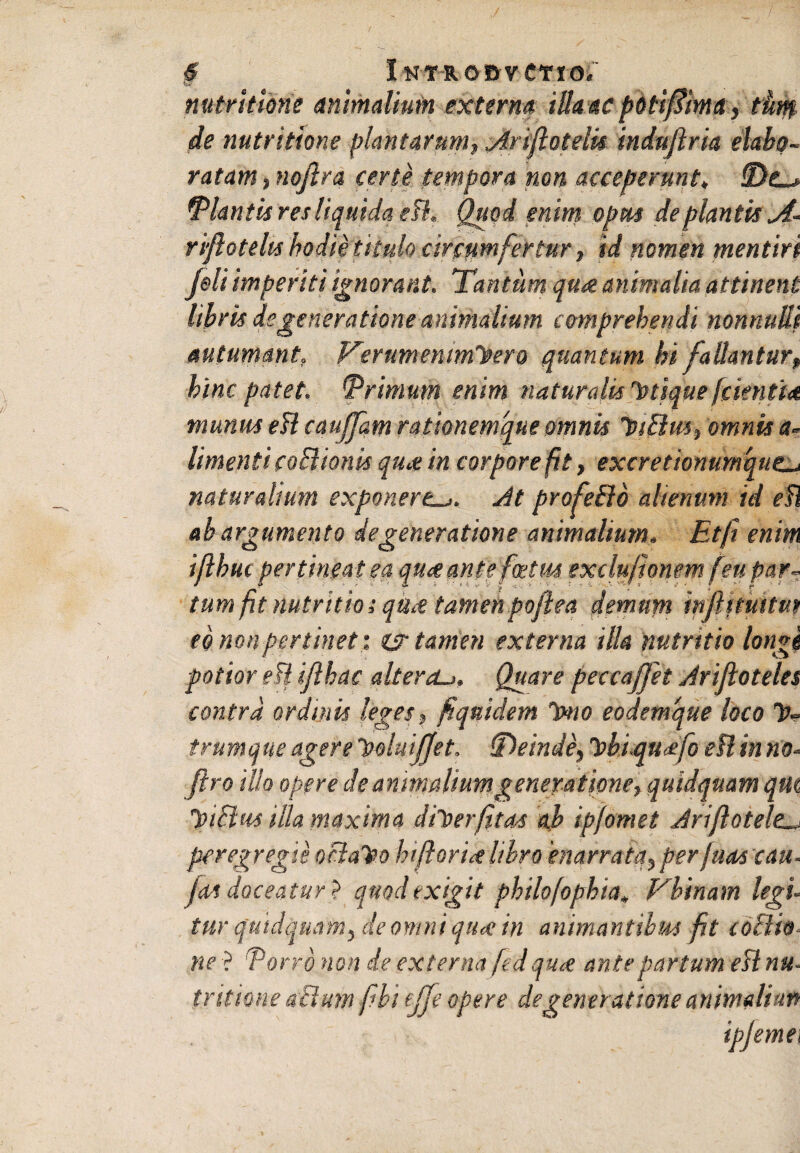 6 INTRODVCTIO.
nutritione animalium externa illa ac potißima, tùm
de nutritione plantarum, Ariſtotelis induſtria elabo-
ratam, noſtra certè tempora non acceperunt. De
Plantis res liquida eſt. Quod enim opus de plantis A-
riſtotelis hodiè titulo circumfertur, id nomen mentiri
ſoli imperiti ignorant. Tantùm quæ animalia attinent
libris de generatione animalium comprehendi nonnulli
autumant. Verumenimvero quantum hi fallantur,
hinc patet. Primum enim naturalis vtique ſcientiæ
munus eſt cauſſam rationemque omnis victus, omnis a-
limenti coctionis quæ in corpore fit, excretionumque
naturalium exponere. At profectò alienum id eſt
ab argumento de generatione animalium. Etſi enim
iſthuc pertineat ea quæ ante fœtus excluſionem ſeu par-
tum fit nutritio; quæ tamen poſtea demum inſtituitur
eò non pertinet: & tamen externa illa nutritio longè
potior eſt iſthac altera. Quare peccaſſet Ariſtoteles
contrà ordinis leges, ſiquidem vno eodemque loco v-
trumque agere voluiſſet. Deindè, vbi quæſo eſt in no-
ſtro illo opere de animalium generatione, quidquam quo
victus illa maxima diverſitas ab ipſomet Ariſtotele
peregregiè octavo hiſtoriæ libro enarrata, per ſuas cau-
ſas doceatur? quod exigit philoſophia. Vbinam legi-
tur quidquam, de omni quæ in animantibus fit coctio-
ne? Porrò non de externa ſed quæ ante partum eſt nu-
tritione actum ſibi eſſe opere de generatione animalium
ipſemet